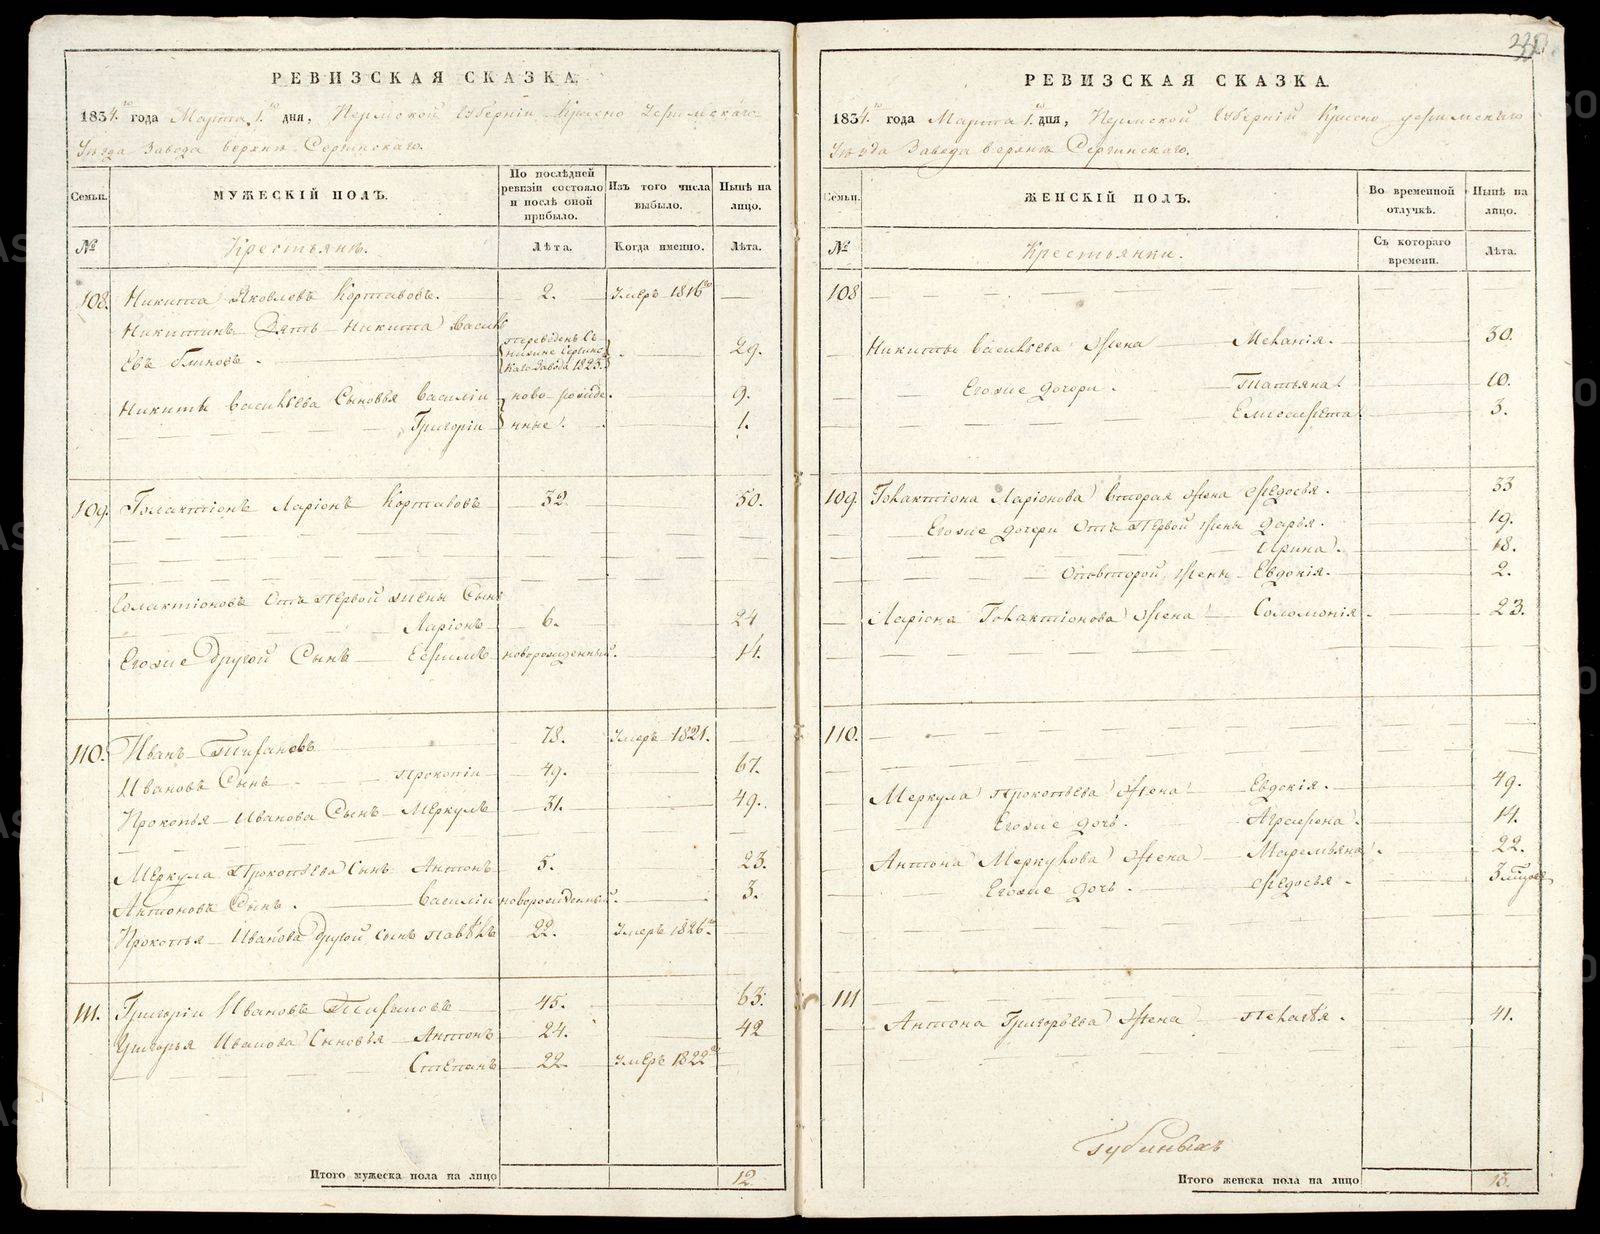 РЕВИЗСКАЯ СКАЗКА.
1834.го года Марта 1.го дня, Пермской Губернiи Красно Уфимскаго
Уѣзда Завода Верхнѣ Сергинскаго.
Семьи.
МУЖЕСКIЙ ПОЛЪ.
По послѣдней ревизiи состояло и послѣ оной прибыло.
Изъ того числа выбыло.
Нынѣ на лицо.
№
Крестьянъ.
Лѣта.
Когда именно.
Лѣта.
108. Никита Яковлевъ Кортавовъ. 2. Умеръ 1816го
Никитинъ Зять Никита Василь
евъ Блиновъ. переведенъ Съ Нижне Сергинскаго Завода 1823. 29.
Никиты Васильева Сыновья Василiи ново-рожде 9.
Григорiи нные. 1.
109. Голактiонъ Ларiонъ Кортавовъ 32. 50.
Голактiоновъ Отъ первой жены Сынъ
Ларiонъ 6. 24
Егоже Другой Сынъ Ефимъ новорожденный. 14.
110. Иванъ Тифановъ 78. Умеръ 1821.
Ивановъ Сынъ Прокопiи 49. 67.
Прокопья Иванова Сынъ Меркулъ 31. 49.
Меркула Прокопьева Сынъ Антонъ 5. 23.
Антоновъ Сынъ. Василiи новорожденный. 3.
Прокопья Иванова Другой сынъ Павѣлъ 22. Умеръ 1826го
111. Григорiи Ивановъ Тифановъ 45. 63.
Григорья Иванова Сыновья Антонъ 24. 42
Степанъ 22. Умеръ 1822го
Итого мужеска пола на лицо 12
РЕВИЗСКАЯ СКАЗКА.
1834.го года Марта 1.го дня, Пермской Губернiй Красно уфимскаго
Уѣзда Завода верхнѣ Сергинскаго.
Семьи.
ЖЕНСКIЙ ПОЛЪ.
Во временной отлучкѣ.
Нынѣ на лицо.
№
Крестьянки.
Съ котораго времени.
Лѣта.
108
Никиты Васильева Жена Меланiя. 30.
Егоже дочери. Татьяна 10.
Елисафета 3.
109. Голактiона Ларiонова Вторая жена Федосья. 33
Егоже дочери Отъ Первой жены Дарья. 19.
Ирина. 18.
Отвторой жены Евдокiя. 2.
Ларiона Голактiонова Жена Соломонiя. 23.
110.
Меркула Прокопьева Жена Евдокiя. 49.
Егоже дочь. Аграфена. 14.
Антона Меркулова Жена Маремьяна. 22.
Егоже дочь. Федосья. 3
111
Антона Григорьева Жена Пелагѣя. 41.
Губиныхъ
Итого женска пола на лицо 13.